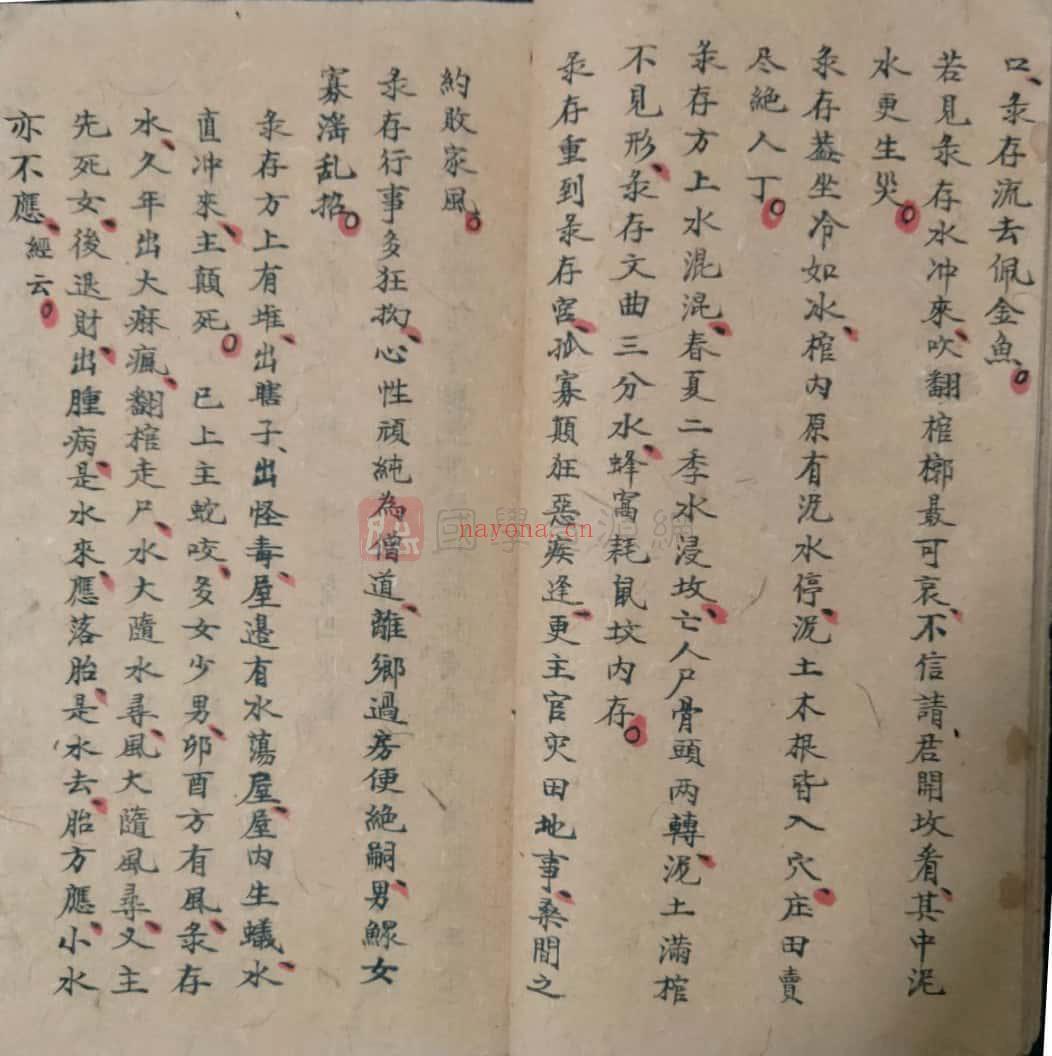 口、彔存流去佩金魚。
若見彔存水冲來、吹翻棺槨最可哀、不信請、君開坟看、其中泥
水更生災。
彔存葢坐冷如冰、棺内原有泥水停、泥土木根皆入穴、庄田賣
尽絶人丁。
彔存方上水混混、春夏二季水浸坟、亡人尸骨頭两轉、泥土滿棺
不見形、彔存文曲三分水、蜂窩耗鼠坟内存。
彔存重到彔存宫、孤寡顛狂惡疾逢、更主官灾田地事、桑間之
約敗家風。
彔存行事多狂拗、心性頑純為僧道、離鄉過房便絶嗣、男鰥女
寡滛乱招。
彔存方上有堆、出瞎子、出怪毒、屋邉有水蕩屋、屋内生蟻、水
直冲來、主顛死。已上主蛇咬、多女少男、卯酉方有風、彔存
水、久年出大痳瘋、翻棺走尸、水大隨水尋、風大隨風尋、又主
先死女、後退財、出腫病、是水來、應落胎、是水去、胎方應、小水
亦不應、經云。
國學資源網
nayona.cn